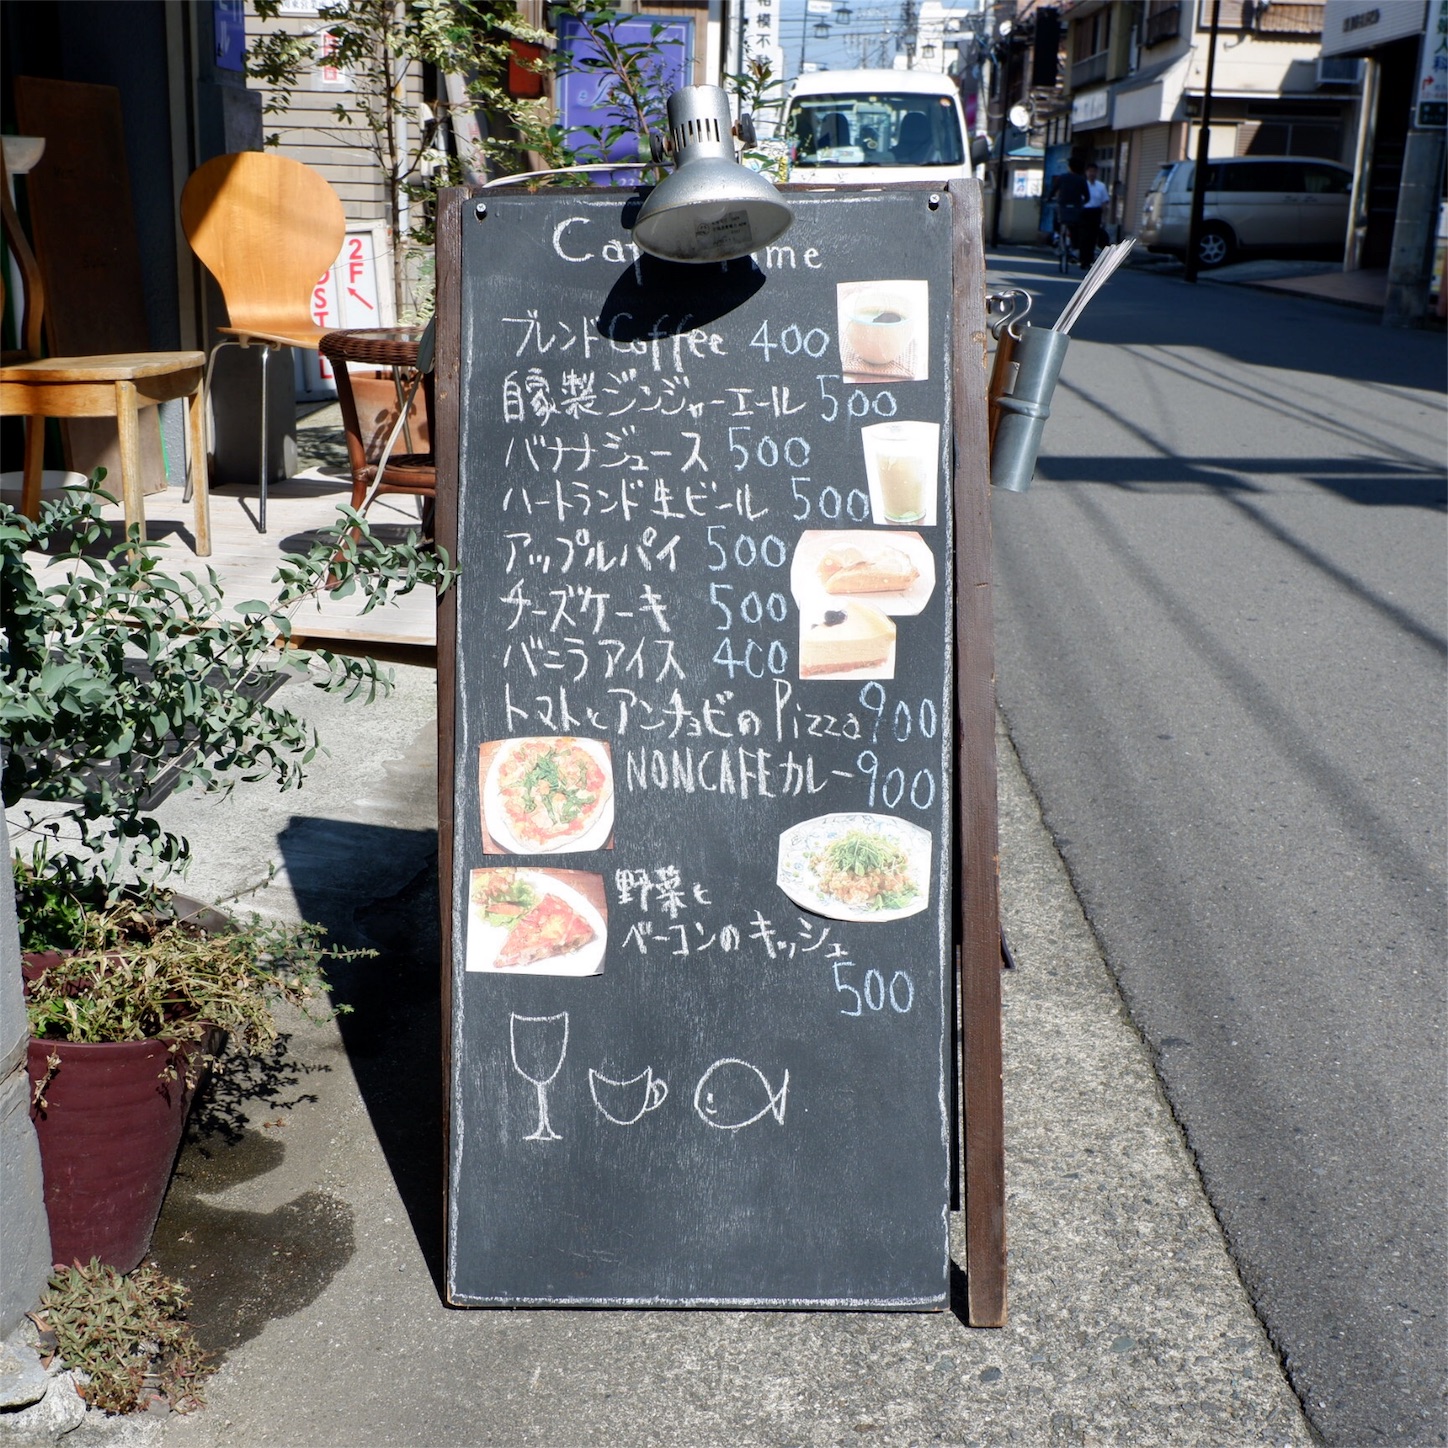 2F
ブレンドCoffee 400
自家製ジンジャーエール 500
バナナジュース 500
ハートランド生ビール 500
アップルパイ 500
チーズケーキ 500
バニラアイス 400
トマトとアンチョビのPizza 900
NONCAFEカレー 900
野菜と
ベーコンのキッシュ
500